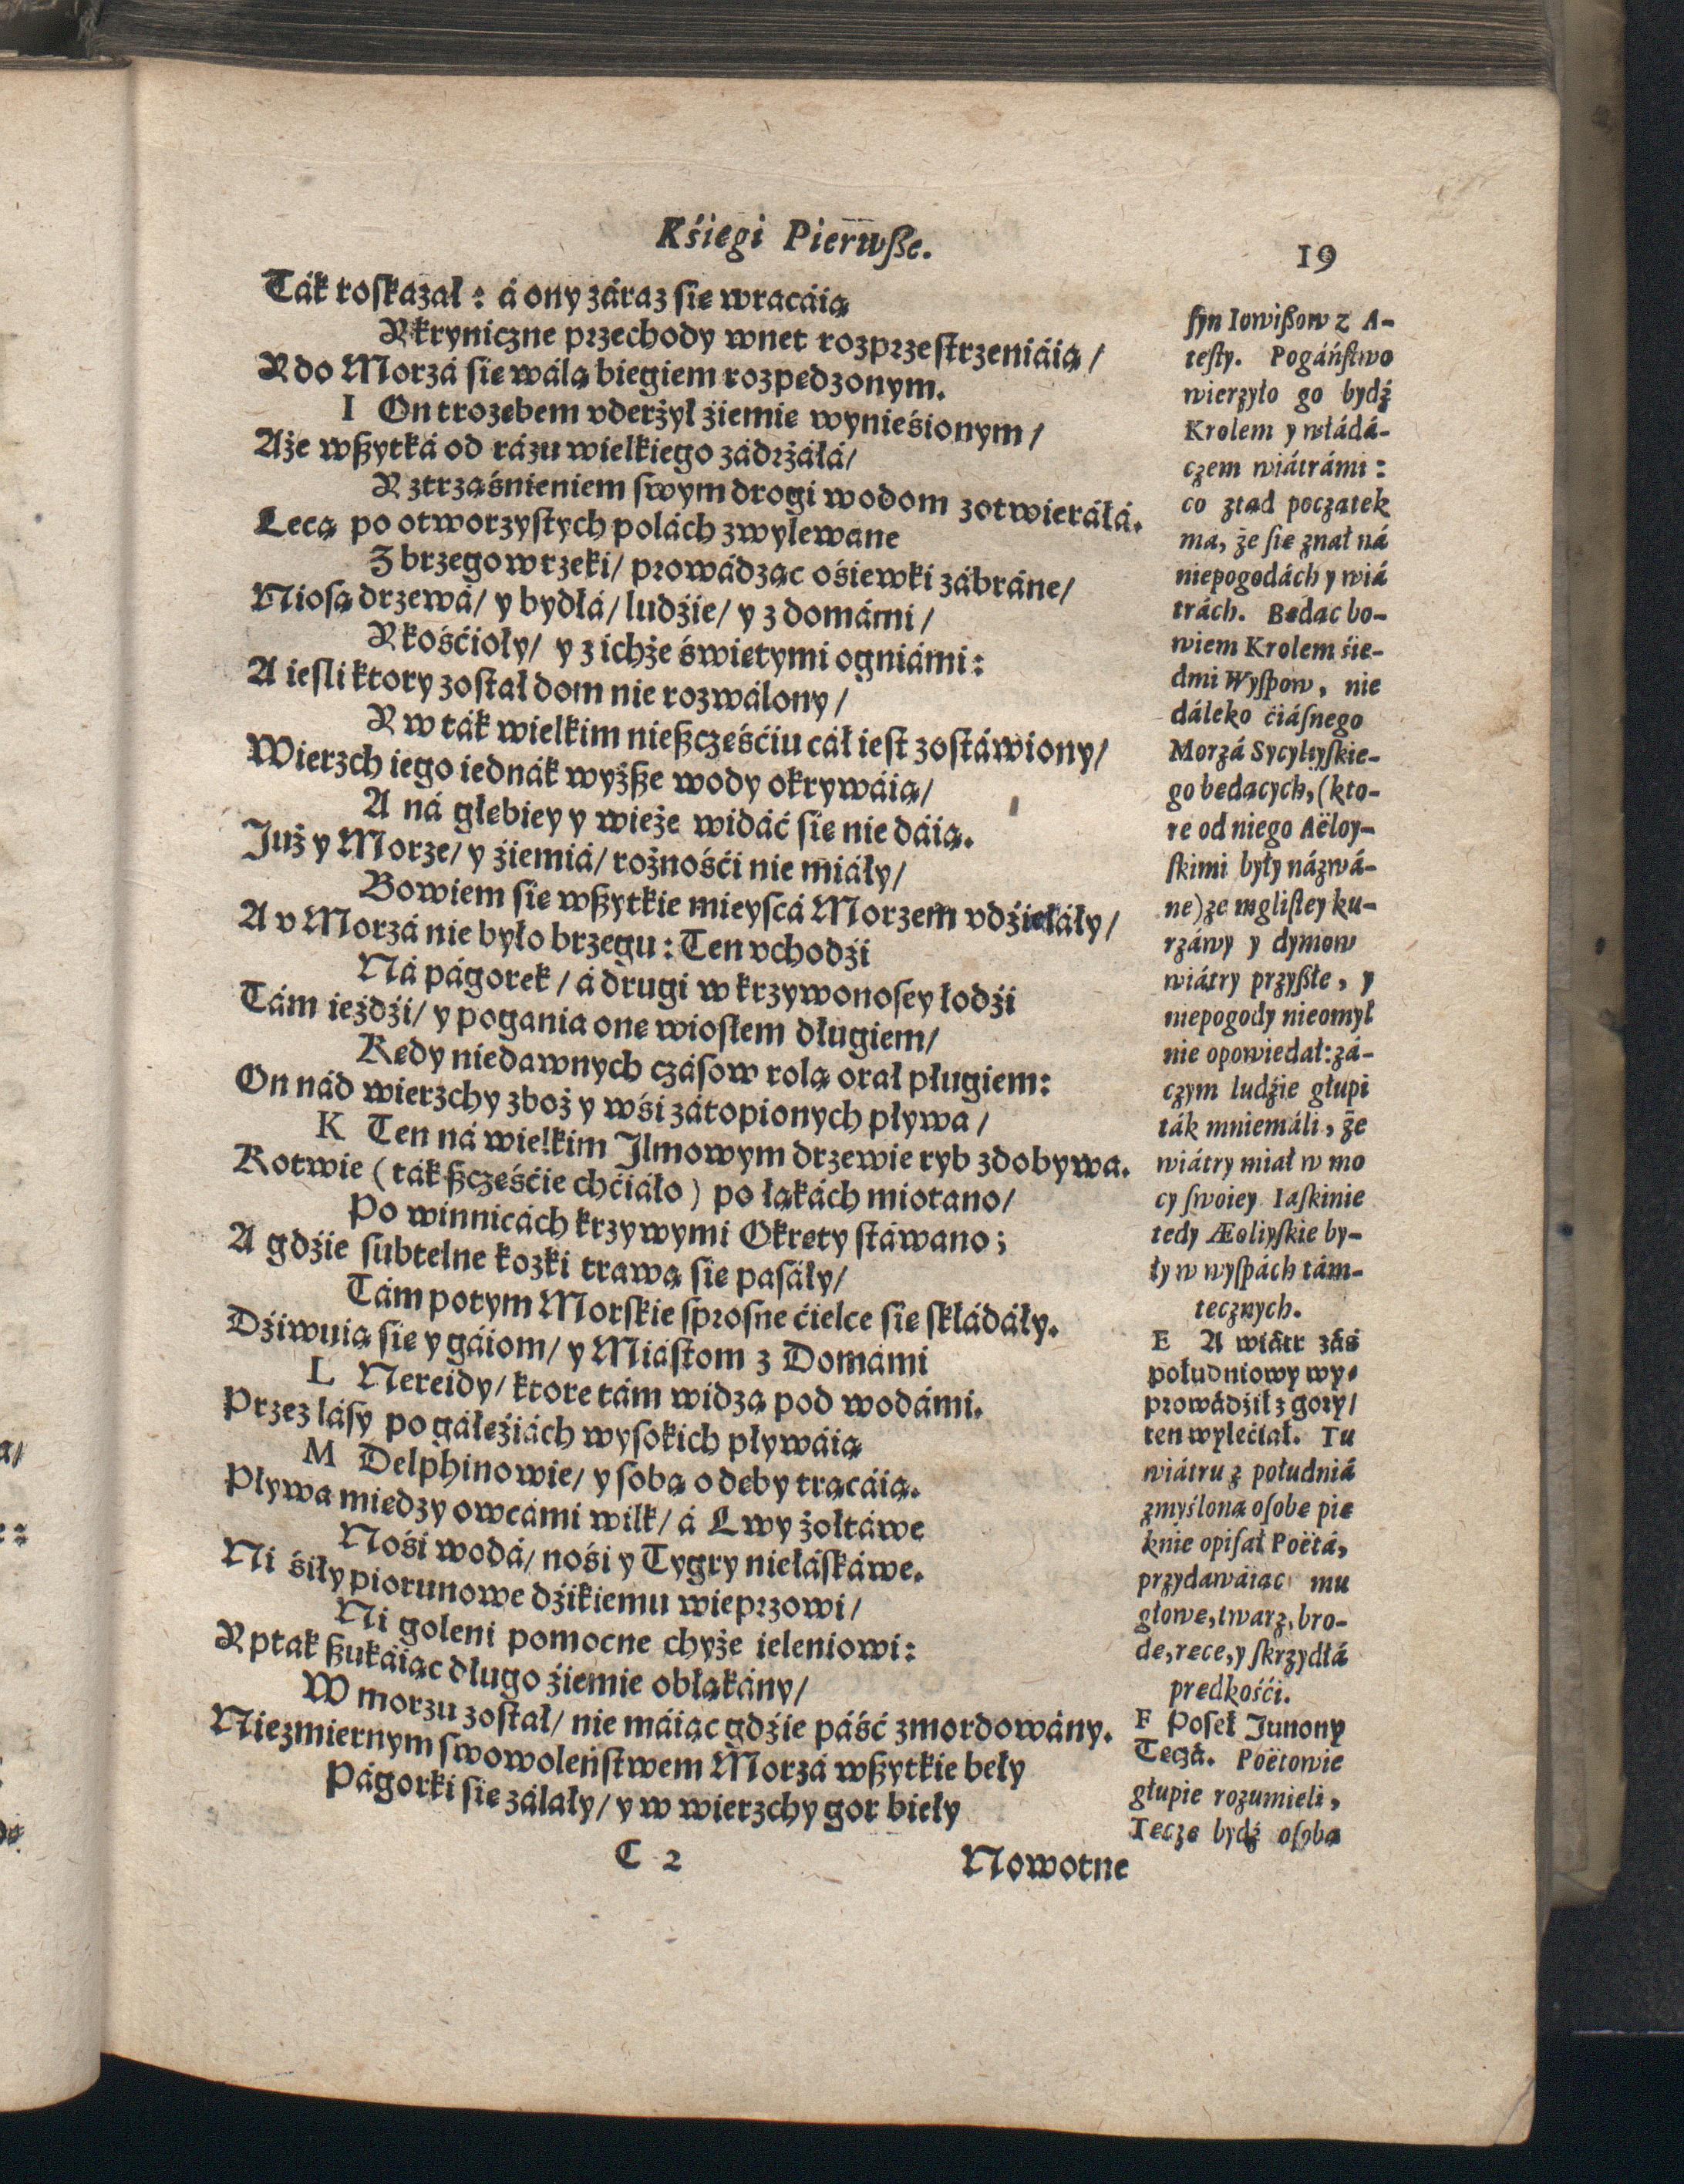 Kśiegi Pierwſße.
19
Ták roſkazał: á ony záraz ſie wracáią
Y kryniczne przechody wnet rozprzeſtrzeniáią/
Y do Morzá ſie wálą biegiem rozpedzonym.
I On trozebem vderżył źiemie wynieśionym/
Aże wßytká od rázu wielkiego zádrżáłá/
Y ztrząśnieniem ſwym drogi wodom zotwieráłá.
Lecą po otworzyſtych polách zwylewane
Z brzegow rzeki/ prowádząc ośiewki zábráne/
Nioſą drzewá/ y bydłá/ ludźie/ y z domámi/
Y kośćioły/ y z ichże świetymi ogniámi:
A ieſli ktory zoſtał dom nie rozwálony/
Y w ták wielkim nießcześćiu cáł ieſt zoſtáwiony/
Wierzch iego iednák wyżße wody okrywáią/
A ná głebiey y wieże widáć ſie nie dáią.
Już y Morze/ y źiemiá/ rożnośći nie miáły/
Bowiem ſie wßytkie mieyſcá Morzem vdźiełáły/
A v Morzá nie było brzegu: Ten vchodźi
Ná págorek/ á drugi w krzywonoſey łodźi
Tám ieźdźi/ y pogania one wioſłem długiem/
Kedy niedawnych czáſow rolą orał pługiem:
On nád wierzchy zboż y wśi zátopionych pływa/
K Ten ná wielkim Jlmowym drzewie ryb zdobywa.
Kotwie (ták ßcześćie chćiáło) po łąkách miotano/
Po winnicách krzywymi Okrety ſtáwano;
A gdźie ſubtelne kozki trawą ſie paſáły/
Tám potym Morſkie ſproſne ćielce ſie ſkłádáły.
Dźiwuią ſie y gáiom/ y Miáſtom z Domámi
L Nereidy/ ktore tám widzą pod wodámi.
Przez láſy po gáłeźiách wyſokich pływáią
M Delphinowie/ y ſobą o deby trącáią.
Pływa miedzy owcámi wilk/ á Lwy żołtáwe
Nośi wodá/ nośi y Tygry niełáſkáwe.
Ni śiły piorunowe dźikiemu wieprzowi/
Ni goleni pomocne chyże ieleniowi:
Y ptak ßukáiąc długo źiemie obłąkány/
W morzu zoſtał/ nie máiąc gdźie páść zmordowány.
Niezmiernym ſwowoleńſtwem Morzá wßytkie beły
Págorki ſie zálały/ y w wierzchy gor bieły
C 2
Nowotne
ſyn Iowißow z A-
teſty. Pogáńſtwo
wierzyło go bydź
Krolem y włádá-
czem wiátrámi:
co ztad początek
ma, że ſie znał ná
niepogodách y wiá
trách. Bedac bo-
wiem Krolem śie-
dmi Wyſpow, nie
dáleko ćiáſnego
Morzá Sycyliyſkie-
go bedacych, (kto-
re od niego Aëloy-
ſkimi były názwá-
ne) ze mgliſtey ku-
rzáwy y dymow
wiátry przyßłe, y
niepogody nieomył
nie opowiedał: zá-
czym ludźie głupi
ták mniemáli, że
wiátry miał w mo
cy ſwoiey. Iaſkinie
tedy Æoliyſkie by-
ły w wyſpách tám-
tecznych.
E A wiátr záś
południowy wy-
prowádźił z gory/
ten wylećiał. Tu
wiátru z południá
zmyśloną oſobe pie
knie opiſał Poëtá,
przydawáiąc mu
głowe, twarz, bro-
de, rece, y ſkrzydłá
predkośći.
F Poſeł Junony
Teczá. Poëtowie
głupie rozumieli,
Tecze bydź oſobą